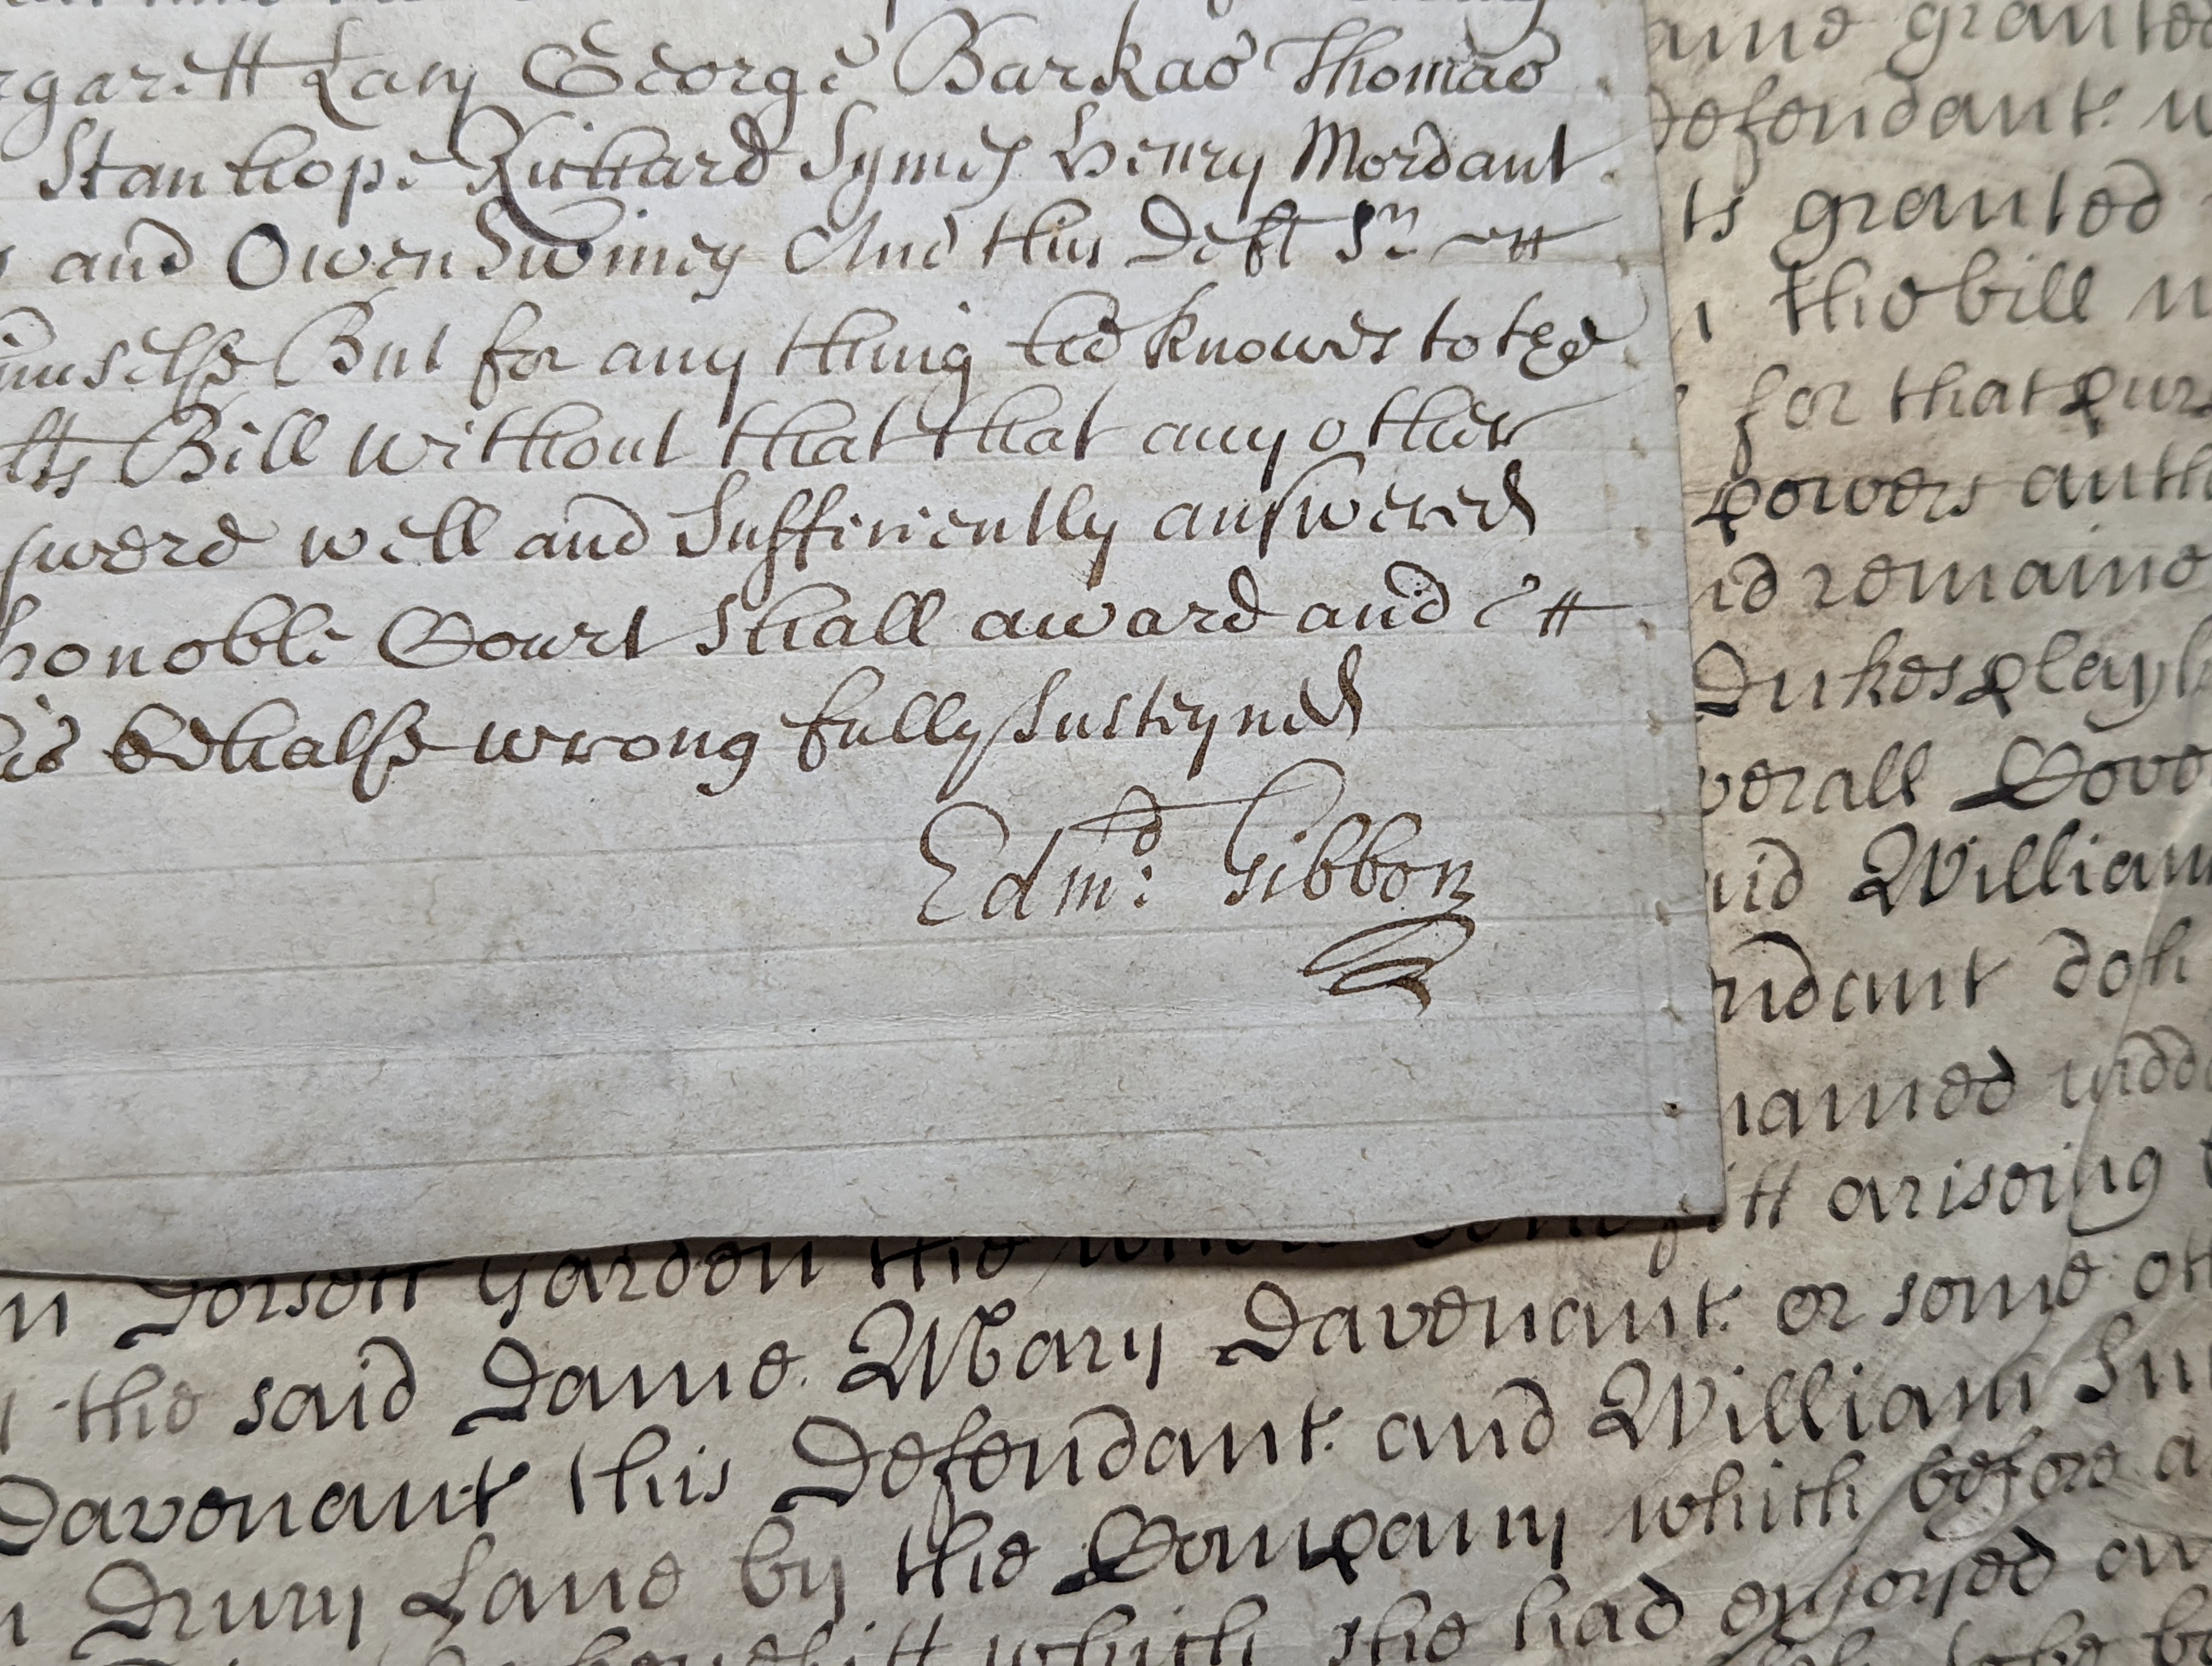 rgarett Lacy George Barkas Thomas
Stanhope Richard Symes Henry Mordant
and Owen Swiney And this Deft Sr
imselfe But for any thing he knowes to the
lts Bill without that that any other
swere well and Sufficiently answered
honoble Court shall award and
is behalfe wrong fully susteyned
Edmd: Gibbon
ame grante
Defendant
ts granted
the bill
for that pur
powers auth
nd remaine
Dukes play h
verall Cove
aid William
ndant doth
named
itt ariseing
n Dorsett Garden the whole benefitt
the said Dame Mary Davenant or some oth
Davenant this Defendant and William
Drury Lane by the Company which before a
benefitt which she had enjoyed an